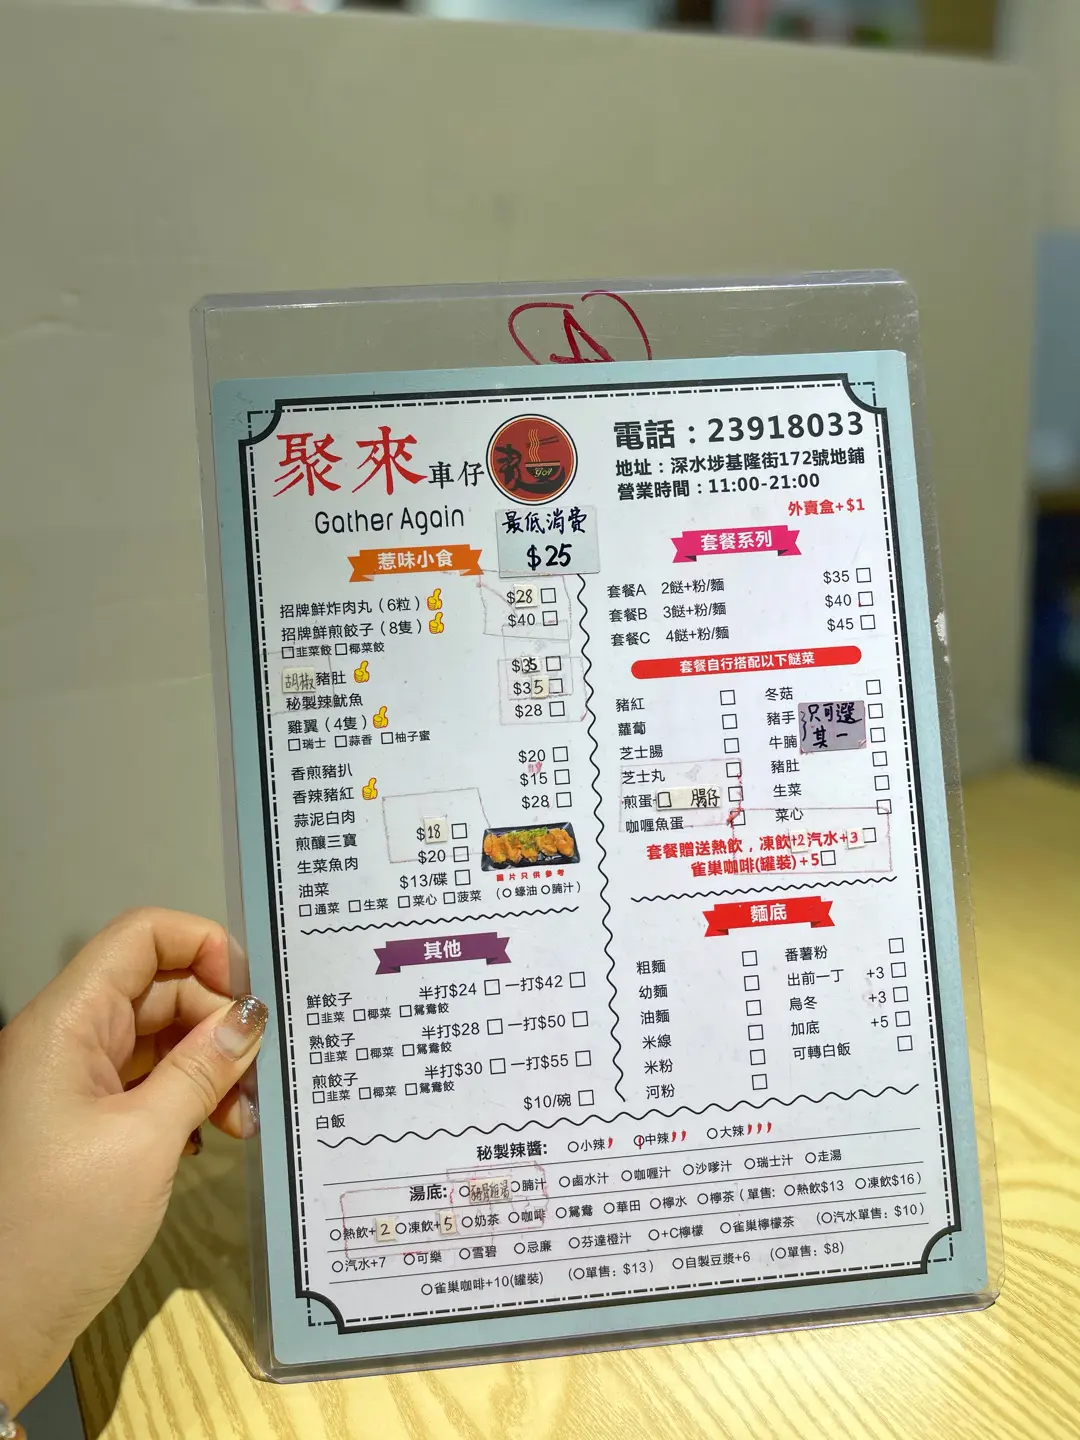 A
聚來車仔
Gather Again
電話：23918033
地址：深水埗基隆街172號地鋪
營業時間：11:00-21:00
外賣盒+$1
最低消費
$25
惹味小食
招牌鮮炸肉丸（6粒） $28
招牌鮮煎餃子（8隻） $40
韭菜餃 椰菜餃
胡椒豬肚 $35
秘製辣魷魚 $35
雞翼（4隻） $28
瑞士 蒜香 柚子蜜
香煎豬扒 $20
香辣豬紅 $15
蒜泥白肉 $28
煎釀三寶 $18
生菜魚肉 $20
油菜 $13/碟
通菜 生菜 菜心 菠菜 （蠔油 腩汁）
圖片只供參考
其他
鮮餃子 半打$24 一打$42
韭菜 椰菜 鴛鴦餃
熟餃子 半打$28 一打$50
韭菜 椰菜 鴛鴦餃
煎餃子 半打$30 一打$55
韭菜 椰菜 鴛鴦餃
白飯 $10/碗
套餐系列
套餐A 2餸+粉/麵 $35
套餐B 3餸+粉/麵 $40
套餐C 4餸+粉/麵 $45
套餐自行搭配以下餸菜
豬紅
蘿蔔
芝士腸
芝士丸
煎蛋 腸仔
咖喱魚蛋
冬菇
豬手
牛腩
只可選
其一
豬肚
生菜
菜心
套餐贈送熱飲，凍飲+2汽水+3
雀巢咖啡(罐裝)+5
麵底
粗麵
幼麵
油麵
米線
米粉
河粉
番薯粉
出前一丁 +3
烏冬 +3
加底 +5
可轉白飯
秘製辣醬: 小辣 中辣 大辣
湯底: 腩汁 鹵水汁 咖喱汁 沙嗲汁 瑞士汁 走湯
熱飲+2 凍飲+5 奶茶 咖啡 鴛鴦 華田 檸水 檸茶（單售: 熱飲$13 凍飲$16）
汽水+7 可樂 雪碧 忌廉 芬達橙汁 +C檸檬 雀巢檸檬茶 （汽水單售：$10）
雀巢咖啡+10(罐裝) （單售：$13） 自製豆漿+6 （單售：$8）